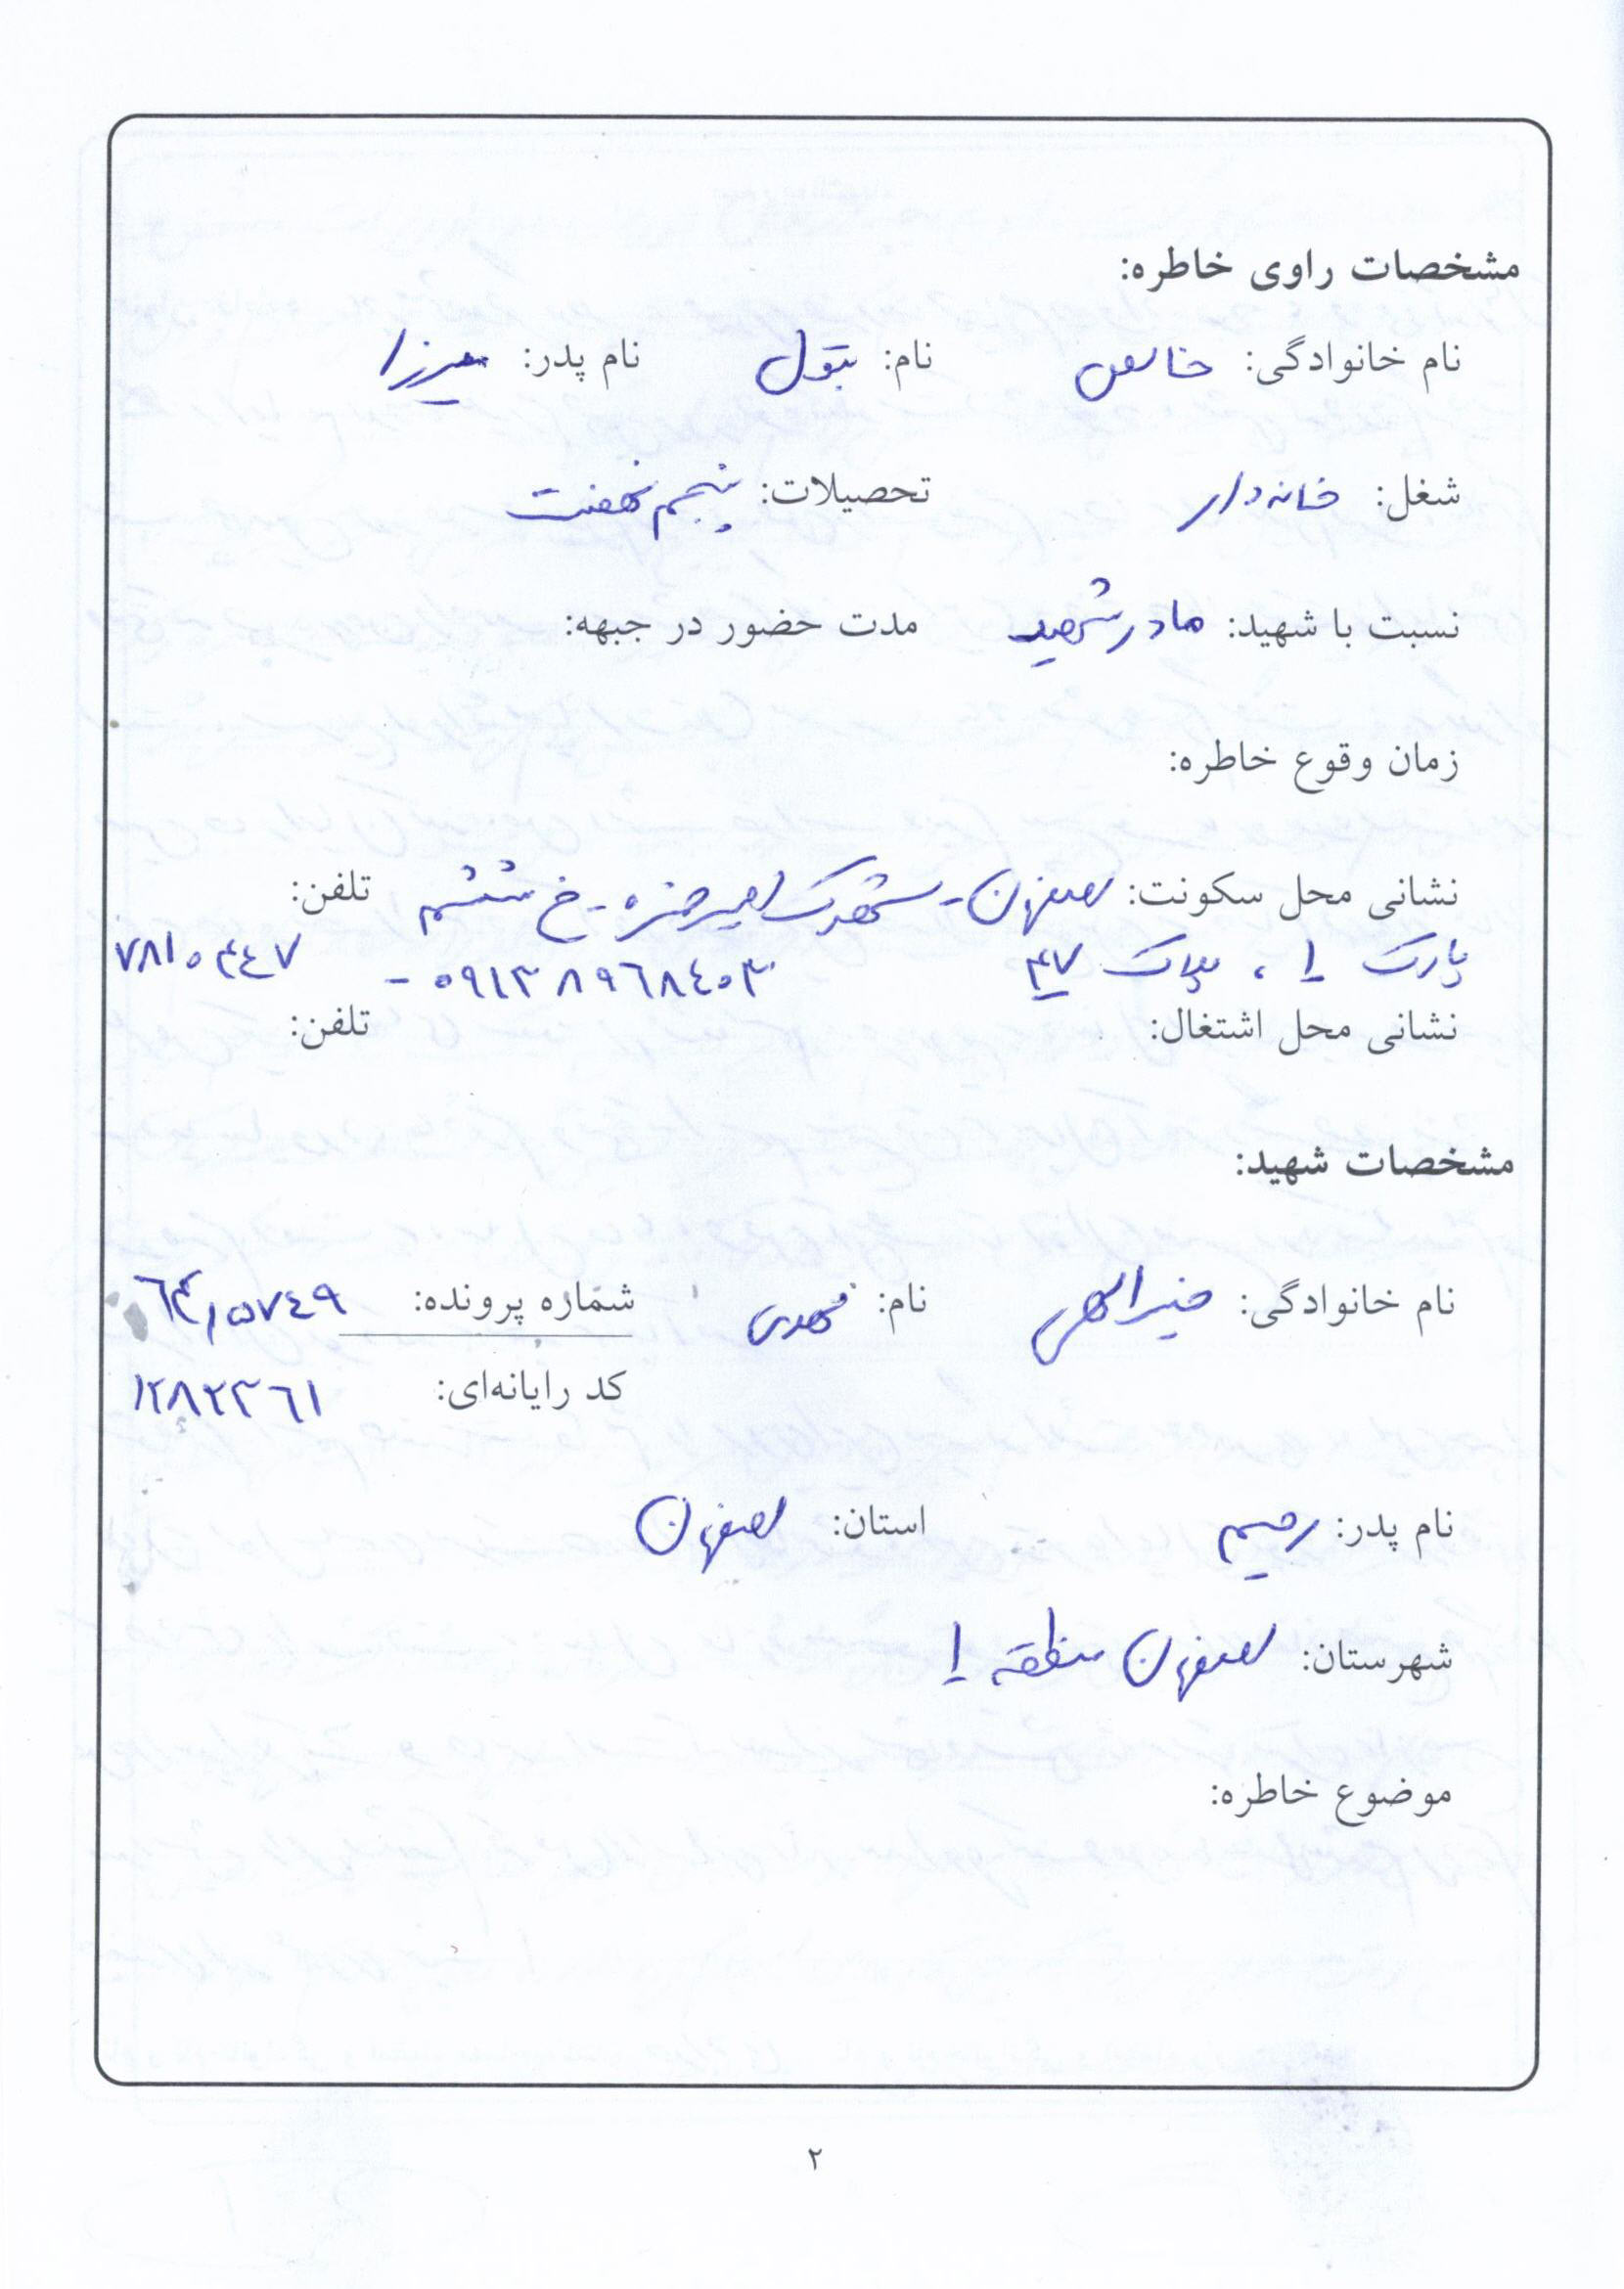 مشخصات راوی خاطره:
نام خانوادگی: خالصی نام: بتول نام پدر: میرزا
شغل: خانه‌دار تحصیلات: پنجم نهضت
نسبت با شهید: مادر شهید مدت حضور در جبهه:
زمان وقوع خاطره:
نشانی محل سکونت: اصفهان - شهرک امیرحمزه - خ ششم تلفن:
پارک ۱ ، پلاک ۴۷ ۰۹۱۳۸۹۶۸۴۰۳ - ۷۸۱۰۳۴۷
نشانی محل اشتغال: تلفن:
مشخصات شهید:
نام خانوادگی: خیرالهی نام: مهدی شماره پرونده:
کد رایانه‌ای: ۱۲۸۲۳۶۱
نام پدر: رحیم استان: اصفهان
شهرستان: اصفهان منطقه ۱
موضوع خاطره:
۲